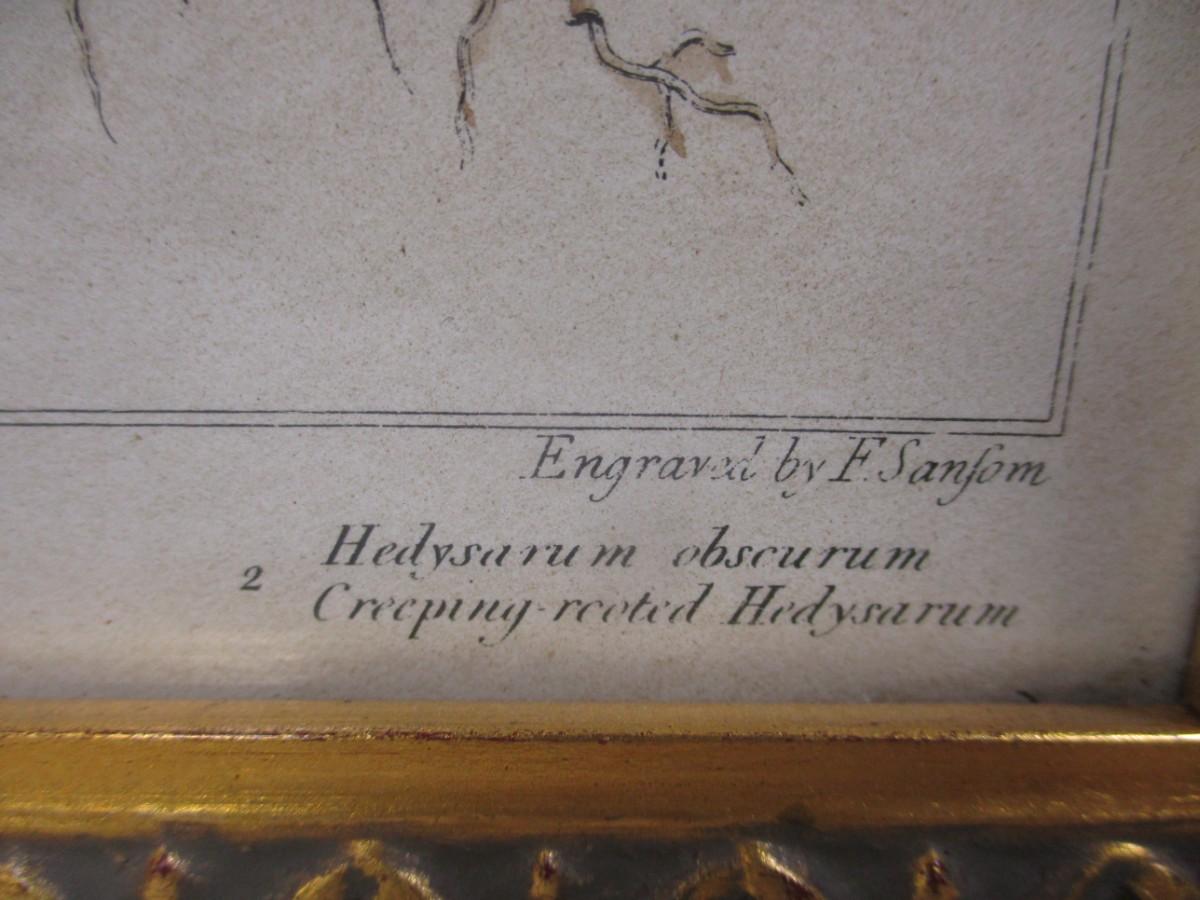 Engraved by F. Sanſom
Hedysarum obscurum
2
Creeping-rooted Hedysarum